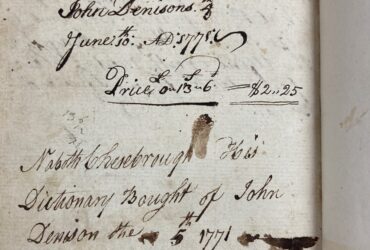 John Denisons
June 10th. AD. 1771
Price £0-13-6 = $2..25
Nabth Chesebrough His
Dictionary Bought of John
Denison the 5th 1771